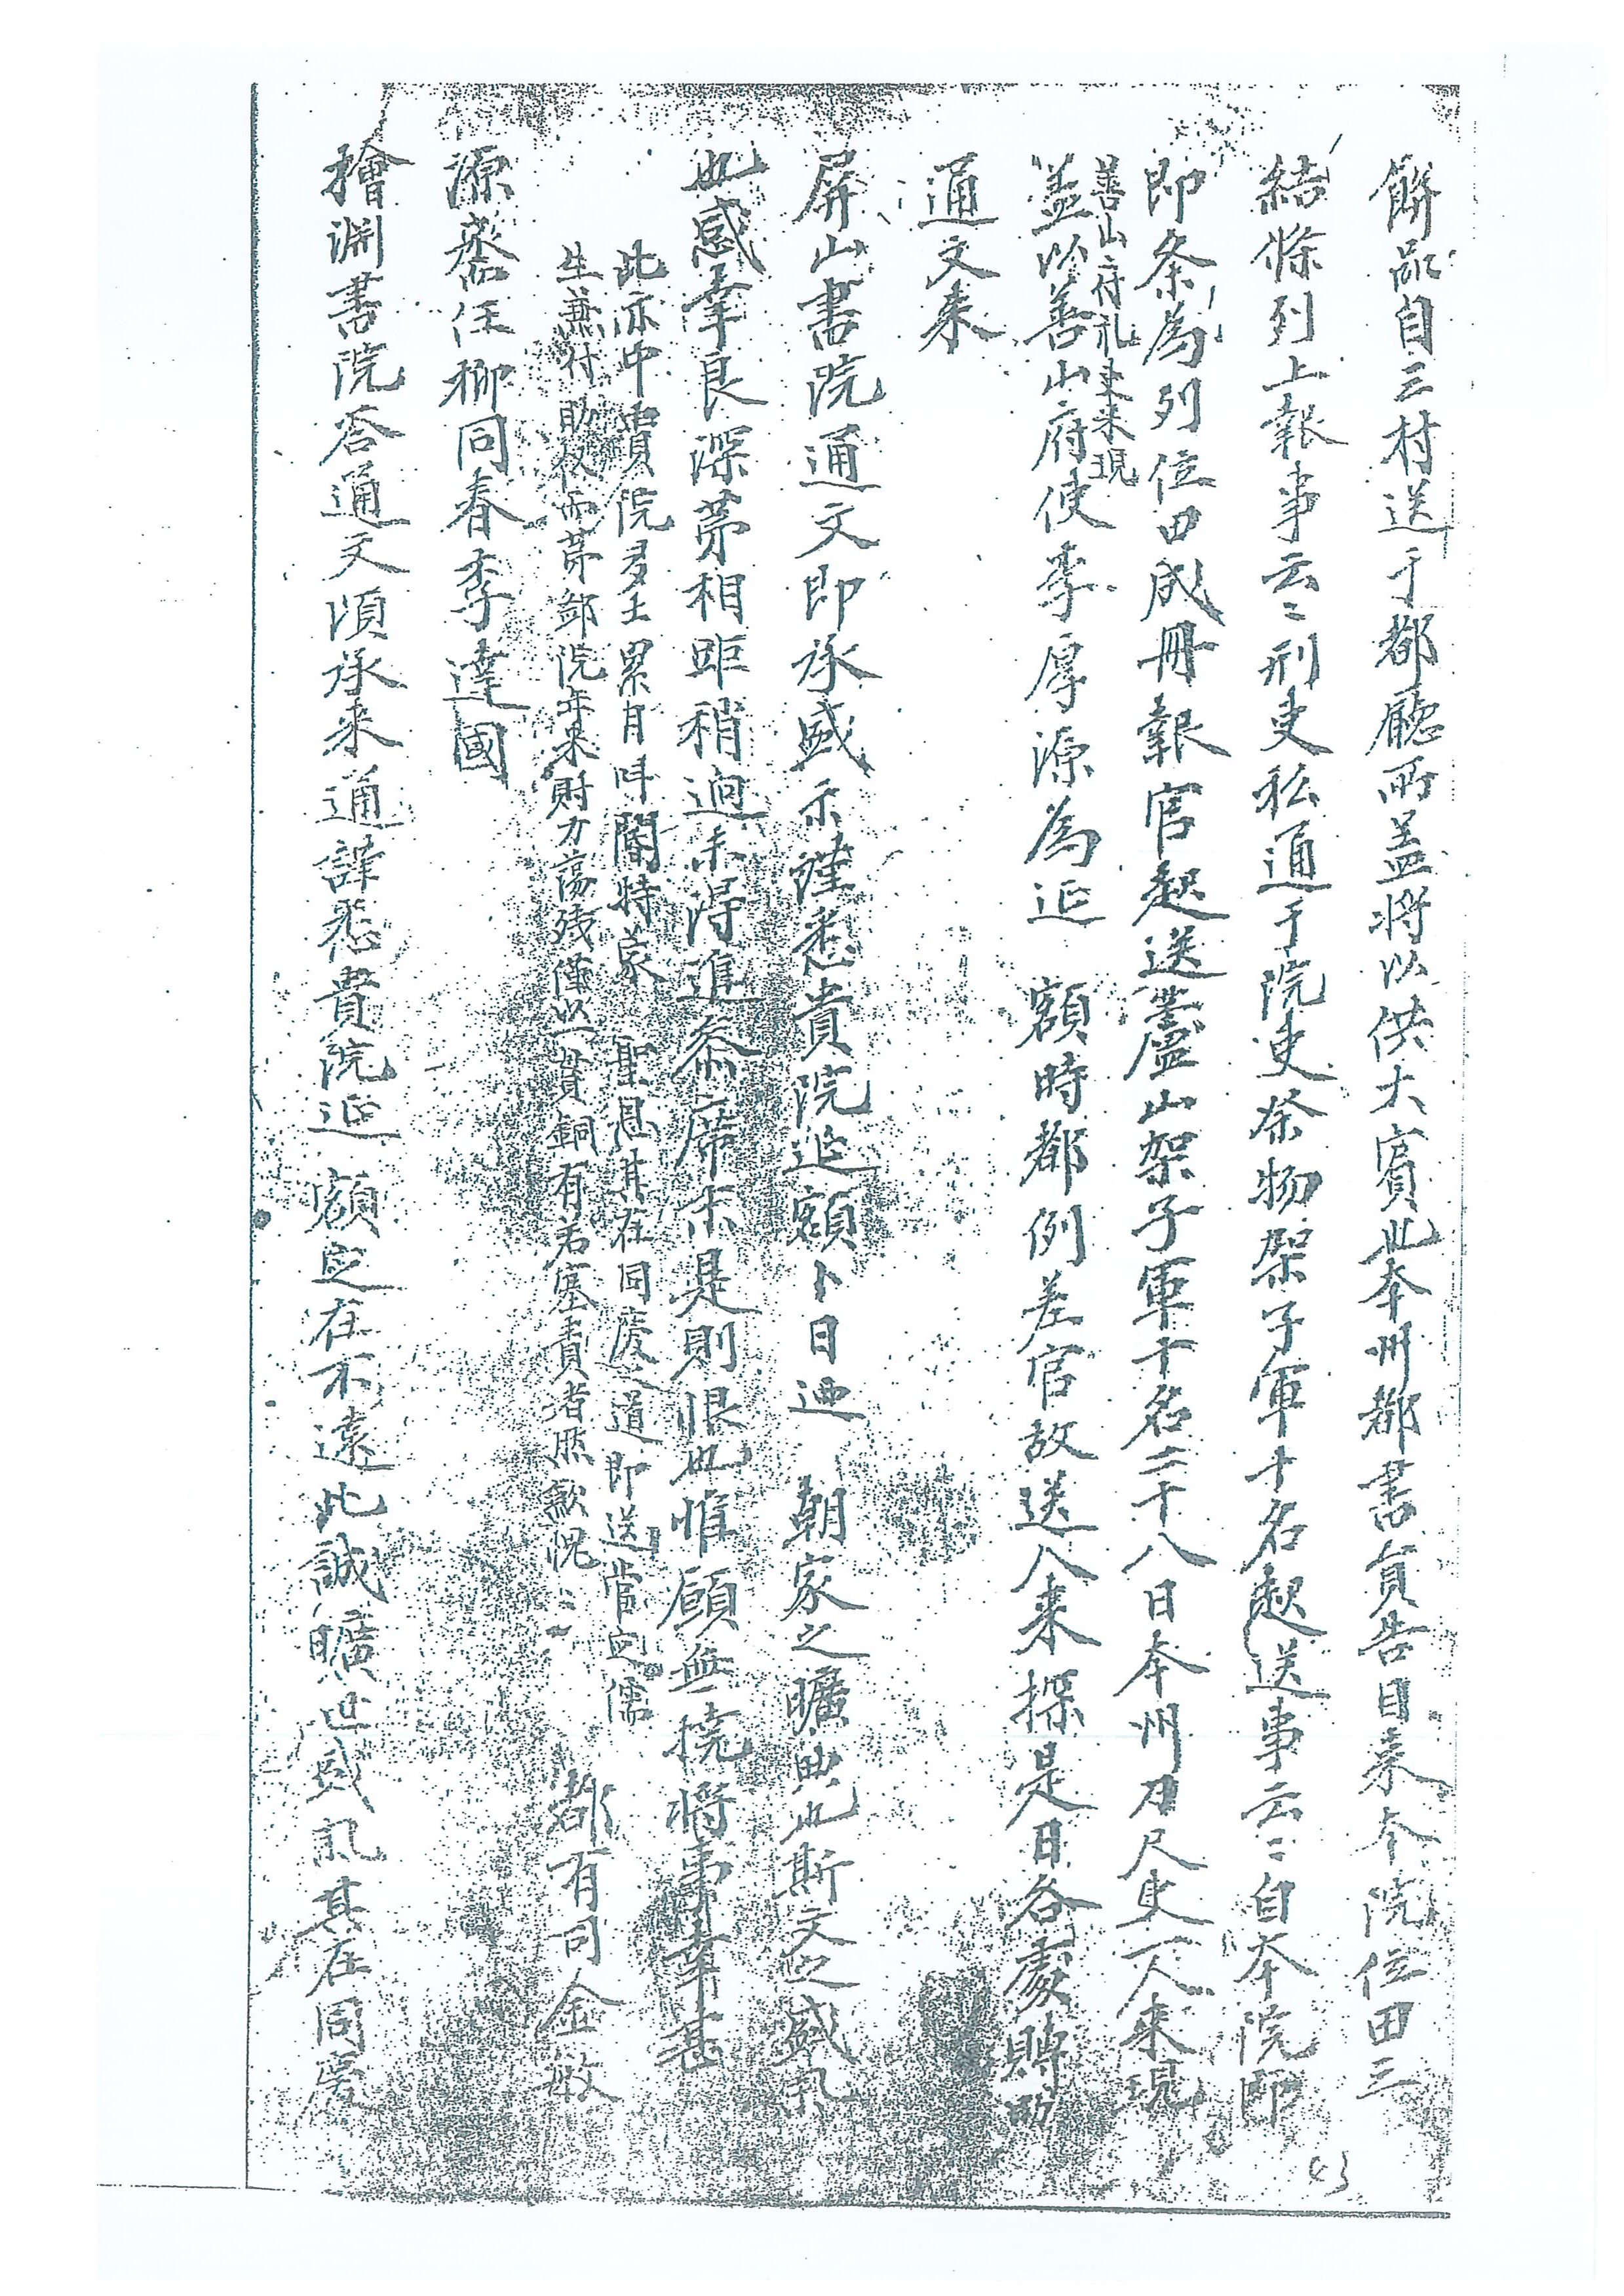 餠品自三村送于都廳所盖將以供大賓也本州都書員告目來本院位田三
結條列上報事云〻刑吏私通于院吏祭物架子軍十名起送事云〻自本院卽
卽条爲列位田成冊報官起送盧山架子軍十名二十八日本州刀尺吏一人來現
善山府礼吏來現
盖以善山府使李厚源爲延 額時都例差官故送人來探是日各處賻助
通文來
屛山書院通文卽承盛示謹悉貴院延額卜日迺 朝家之曠典也斯文之盛氣
也感幸良深第相距稍逈未得進參席末是則恨也惟願無撓將事幸甚
此亦中貴院多士累月叫閽特蒙 聖恩其在同慶之道卽送當之儒
生兼付助仪而第鄙院年來財力蕩殘僅以一貫銅有若塞責者然歉愧〻〻 都有司金
源 齋任柳同春李達國
檜淵書院答通文頃承來通謹悉貴院延 額定在不遠此誠曠世盛氣其在同慶
43